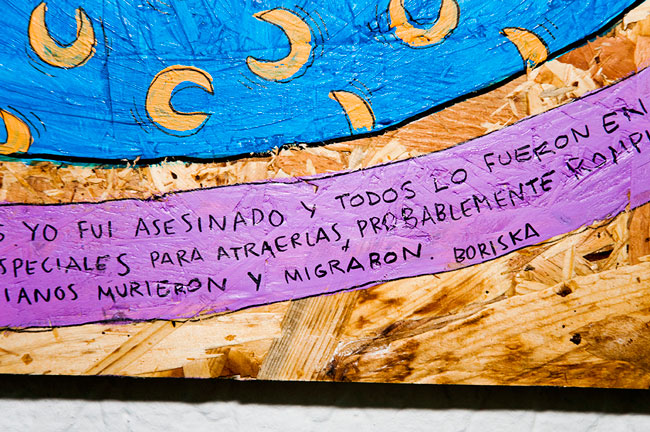 S. YO FUI ASESINADO Y TODOS LO FUERON EN
SPECIALES PARA ATRAERLAS, PROBABLEMENTE ROMPI
IANOS MURIERON Y MIGRARON. BORISKA